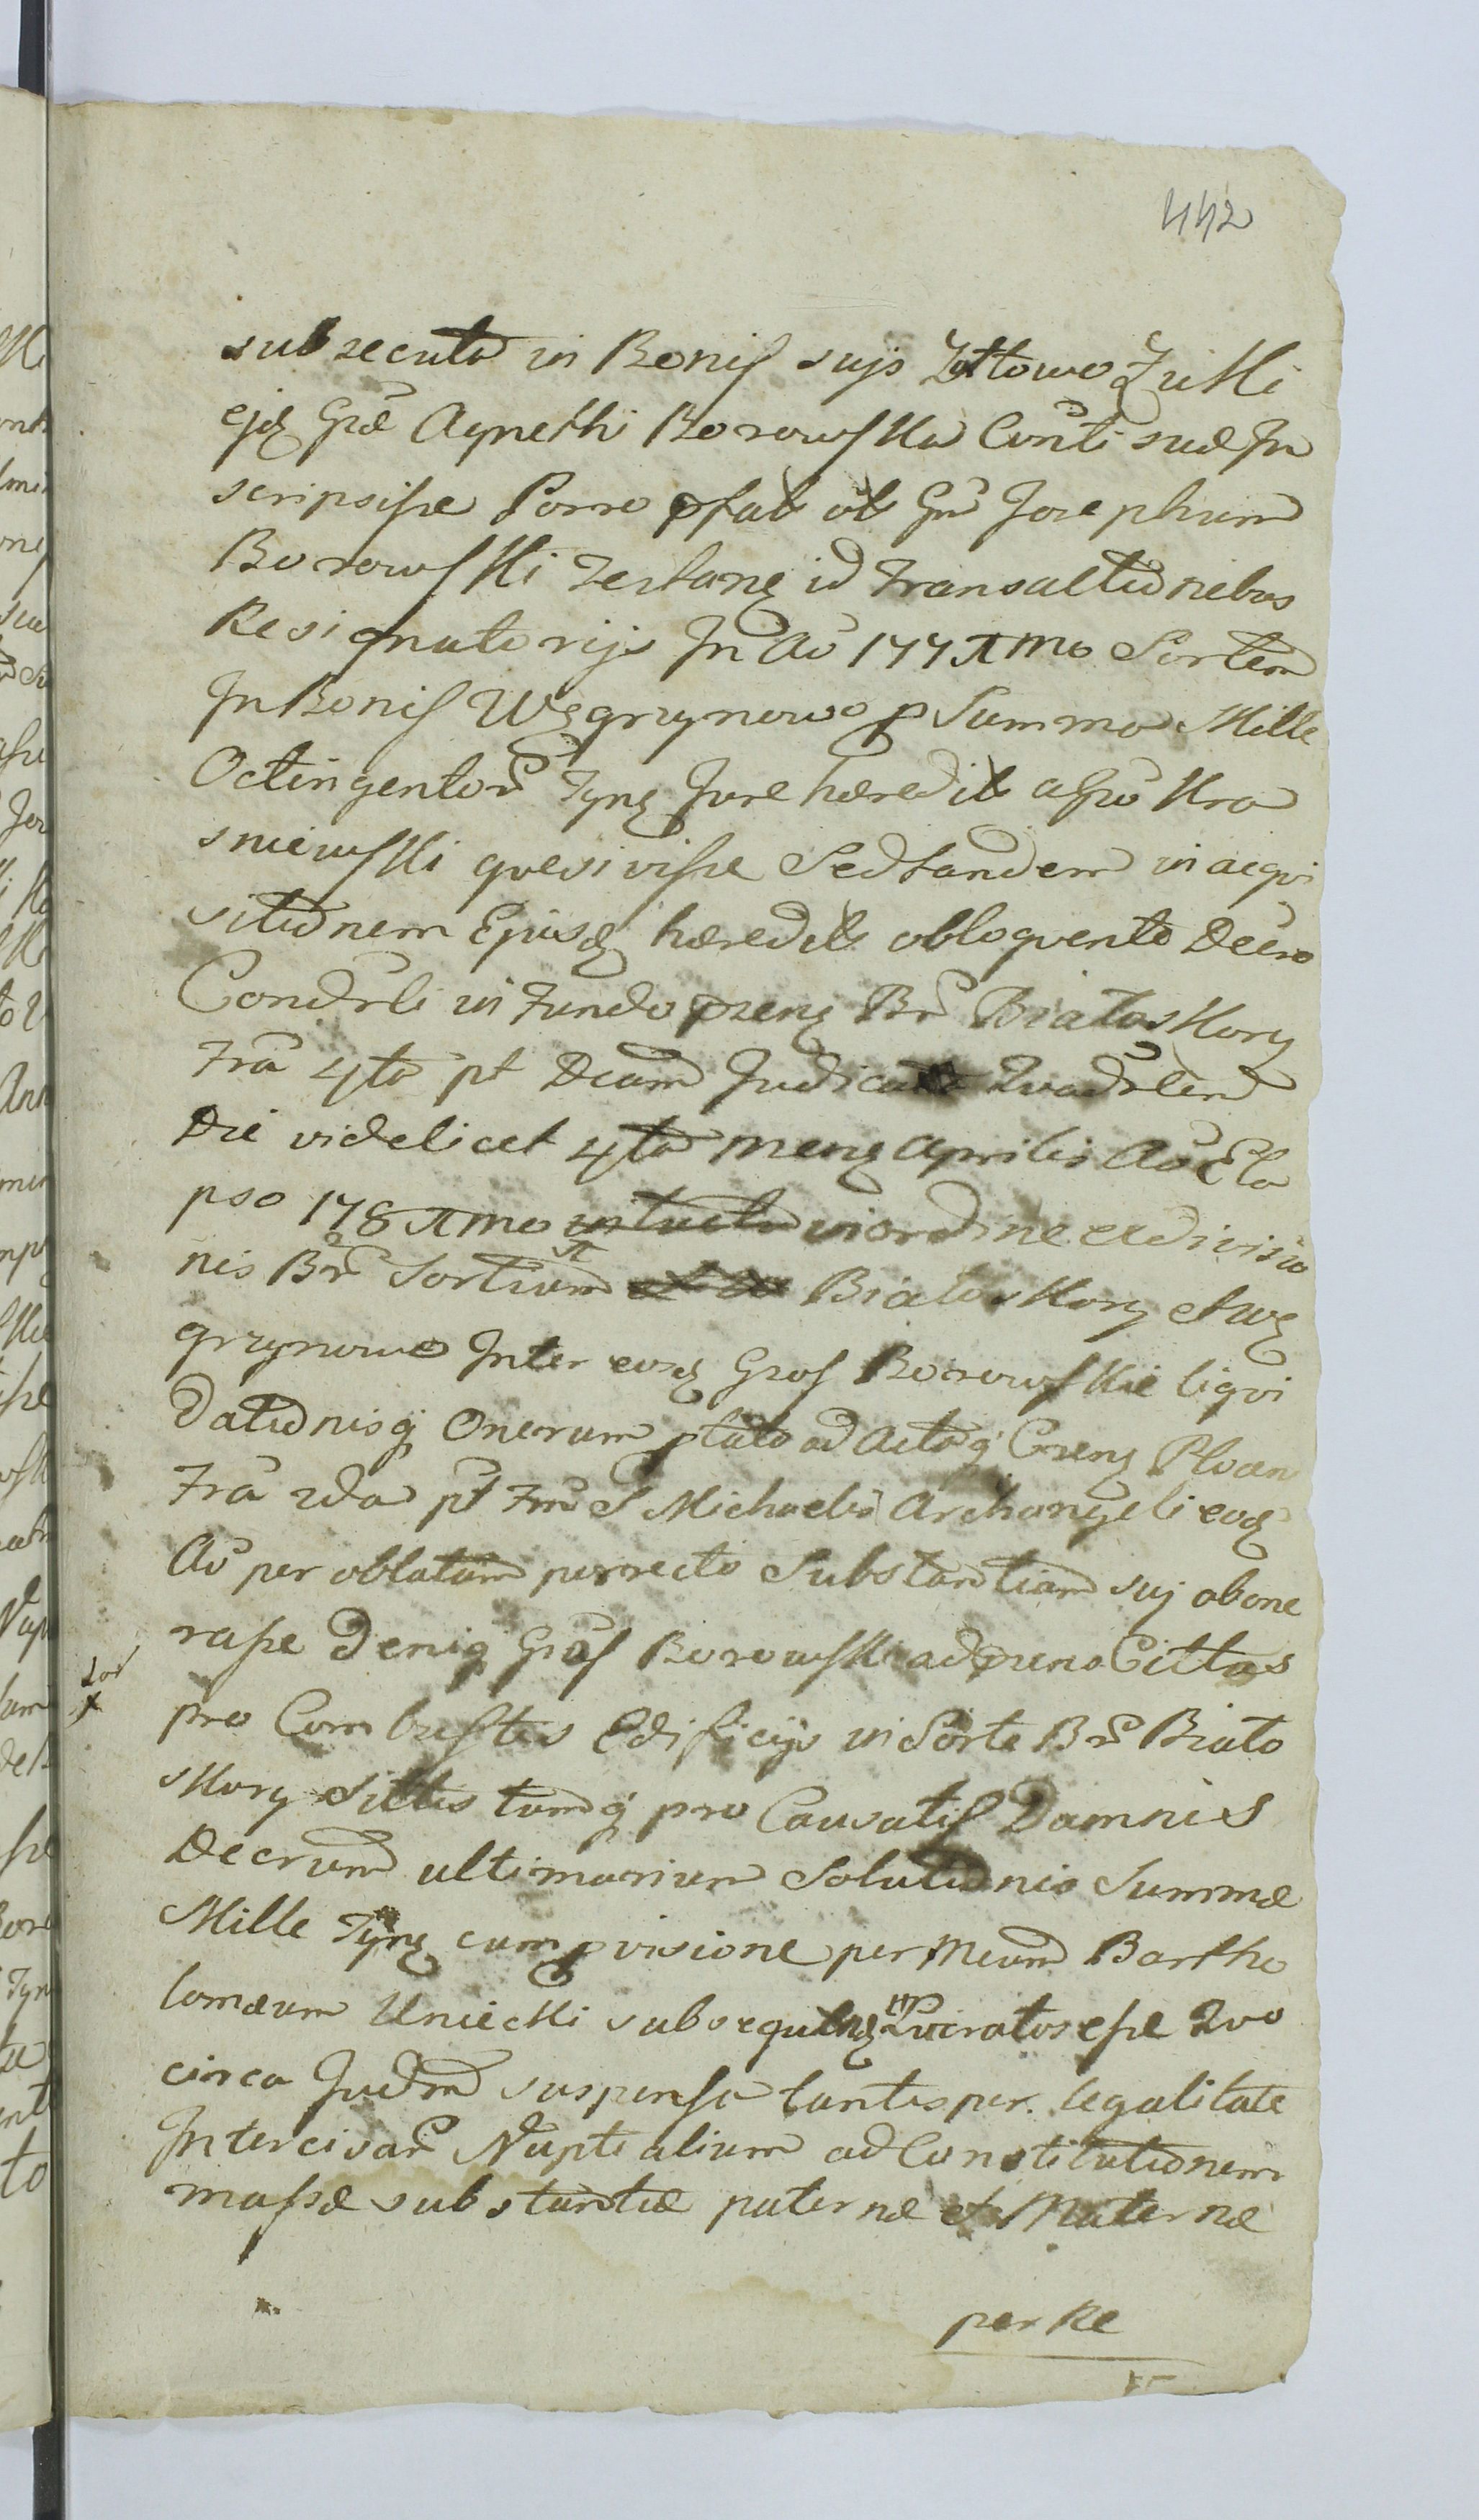 442
subsecuta in Bonis suis Żółtowo Żuki
ejq Grae Agnethi Borowska Conti suae In
scripsisse Porro pfat ot Gnr Josephum
Borowski Testanq id Transactionibus
Resignatorijs In Ao 177πmo Sortem
In Bonis Węgrzynowo p Summa Mille
Octingentor Fynq Jure haeredit a Gro Kra
sniewski quesivisse Sed tandem in acqvi
sitionem Ejusq haeredit obloquente Decro
Condrli in Fundo praenq Br Białoskory
Fra 4ta pt Dcam Judica Quadrlem
Die videlicet 4ta menq Aprilis Ao Ela
pso 178πmo in ordine exdivisio
nis Br Sortium et Białoskory et Wę
grzynowo Inter eosq Gros Borowskie liqvi
dationisq Onerum plato ad Actaq Crenq Ploan
Fra 2da pt Fm S Michaelis Archangeli eodq
Ao per oblatam porrecto Substantiam suj abone
rasse Deniq Gros Borowski ad praeno Cittas
pro Combustis Edificijs in Sorte Br Biało
skory Sittis tumq pro Causatis Damnis
Decrum ultimarium Solutionis Summae
Mille Fynq cum pvisione per Meum Bartho
lomaeum Uniecki subsequtnq Lucratos esse Quo
circa Judm suspensa tantisper legalitate
Intercisar Nuptialium ad Constitutionem
massae substantiae paternae et Maternae
per Re